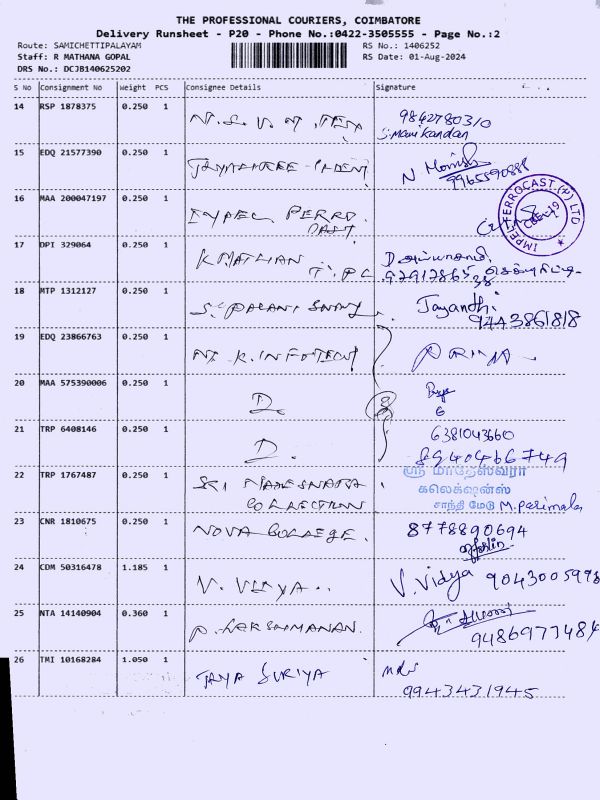 THE PROFESSIONAL COURIERS, COIMBATORE
Delivery Runsheet - P20 - Phone No.:0422-3505555 - Page No.:2
Route: SAMICHETTIPALAYAM
RS No.: 1406252
Staff: R MATHANA GOPAL
RS Date: 01-Aug-2024
DRS No.: DCJB140625202
S No Consignment No Weight PCS Consignee Details Signature
14 RSP 1878375 0.250 1 9842780310
S. Mani kandan
15 EDQ 21577390 0.250 1 N
9965890888
16 MAA 200047197 0.250 1
FERROCAST (P) LTD
17 DPI 329064 0.250 1 K MATHAN
T. P C
18 MTP 1312127 0.250 1 S. PALANI SAMY Jayandhi
9443861818
19 EDQ 23866763 0.250 1 K. INFOTECH
20 MAA 575390006 0.250 1 D. 3
6
21 TRP 6408146 0.250 1 D. 6381043660
8940466749
22 TRP 1767487 0.250 1 SRI
COLLECTION
ஸ்ரீ மாதேஸ்வரா
கலெக்ஷன்ஸ்
சாந்தி மேடு M. Parimala
23 CNR 1810675 0.250 1 NOVA COLLEGE. 8778890694
24 CDM 50316478 1.185 1 V. VIDYA.. V. Vidya 9043005998
25 NTA 14140904 0.360 1 P. LAKSHMANAN.
9486977484
26 TMI 10168284 1.050 1 JAYA SURIYA
9943431945